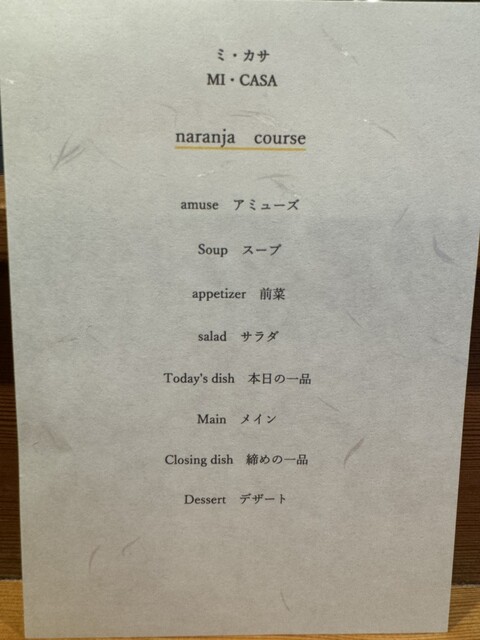 ミ・カサ
MI・CASA
naranja course
amuse アミューズ
Soup スープ
appetizer 前菜
salad サラダ
Today's dish 本日の一品
Main メイン
Closing dish 締めの一品
Dessert デザート